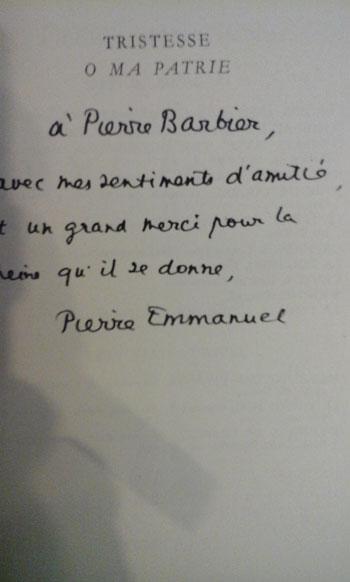 TRISTESSE
O MA PATRIE
à Pierre Barbier,
avec mes sentiments d'amitié,
t un grand merci pour la
peine qu'il se donne,
Pierre Emmanuel